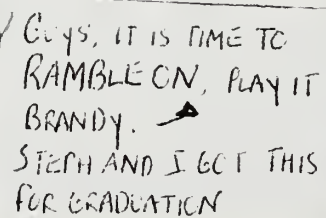 Guys, IT IS TIME TO
RAMBLE ON, PLAY IT
BRANDY.
STEPH AND I GOT THIS
FOR GRADUATION